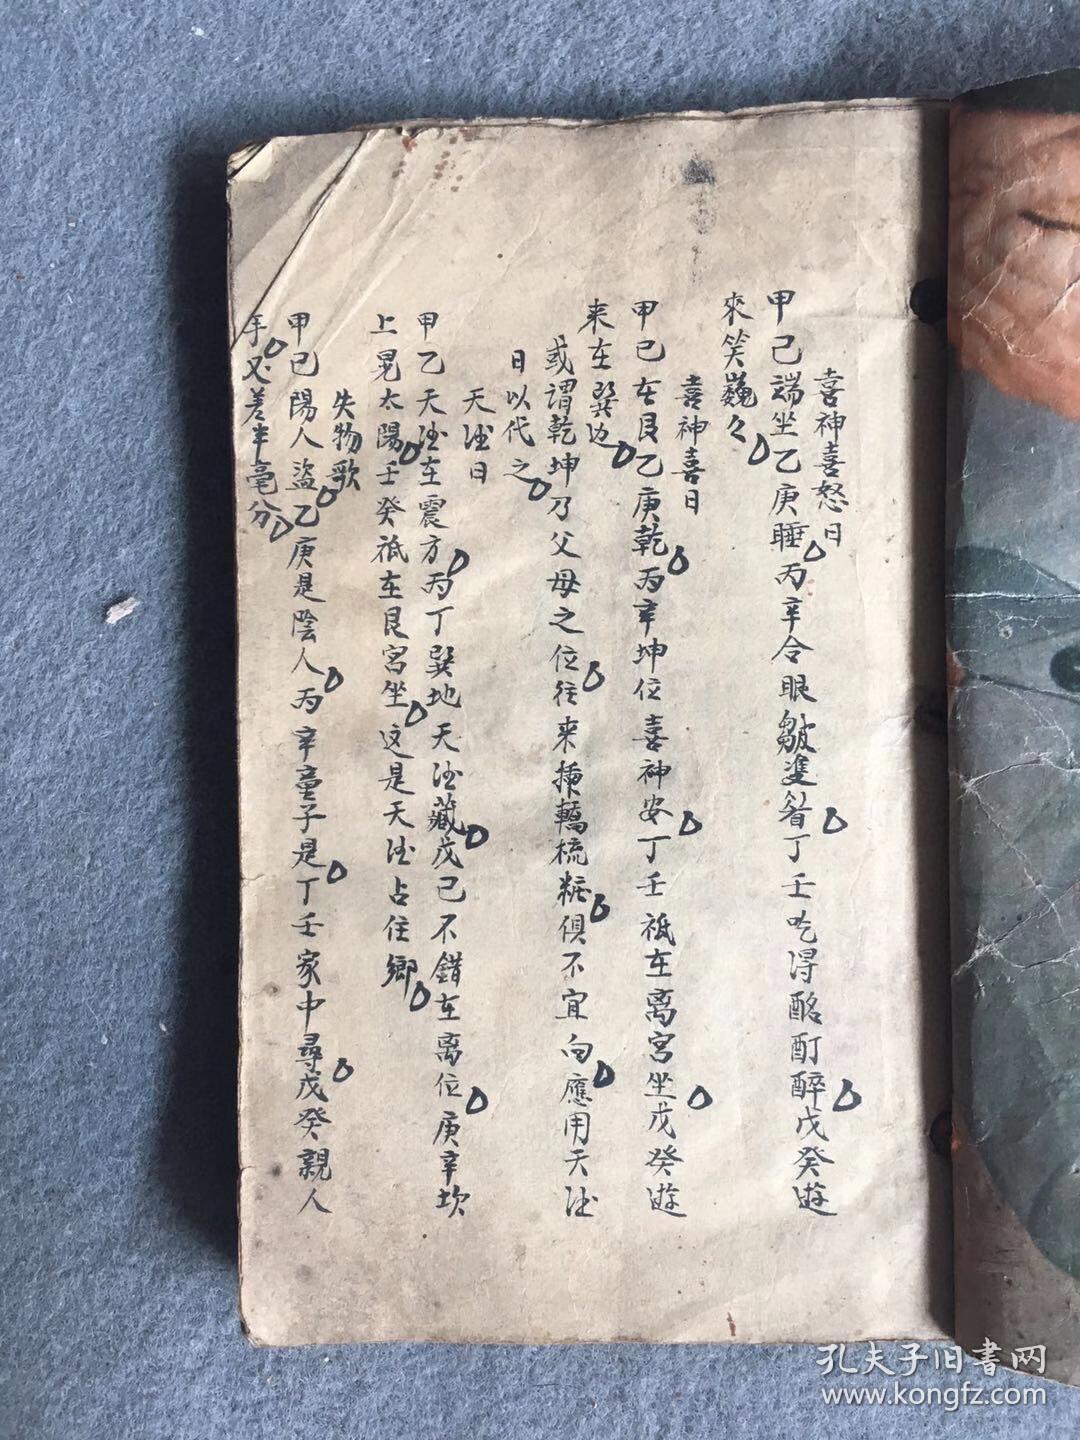 喜神喜怒日
甲己端坐乙庚睡丙辛合眼皺雙眉丁壬吃得酩酊醉戊癸遊
來笑巍々
喜神喜日
甲己在艮乙庚乾丙辛坤位喜神安丁壬祗在离宮坐戊癸遊
来在巽边
或謂乾坤乃父母之位往来換轎梳粧俱不宜向應用天德
日以代之
天德日
甲乙天德在震方丙丁巽地天德藏戊己不錯在离位庚辛坎
上晃太陽壬癸祗在艮宮坐这是天德占住鄉
失物歌
甲己陽人盜乙庚是陰人丙辛童子是丁壬家中尋戊癸親人
手必差半毫分
孔夫子旧書网
www.kongfz.com